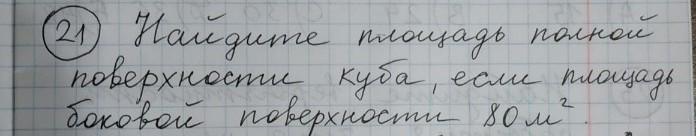 21 Найдите площадь полной
поверхности куба, если площадь
боковой поверхности 80 м².